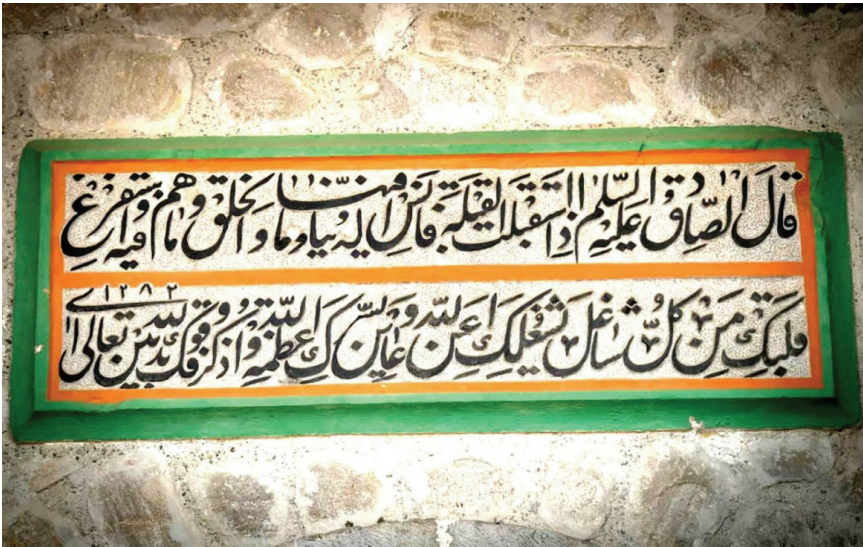 قال الصادق عليه السلم اذا استقبلت القبلة فانس الدنيا وما فيها والخلق وما هم فيه واستفرغ
قلبك من كل شاغل يشغلك عن الله وعاين بسرك عظمة الله واذكر وقوفك بين يدى الله تعالى ۱۳۸۲